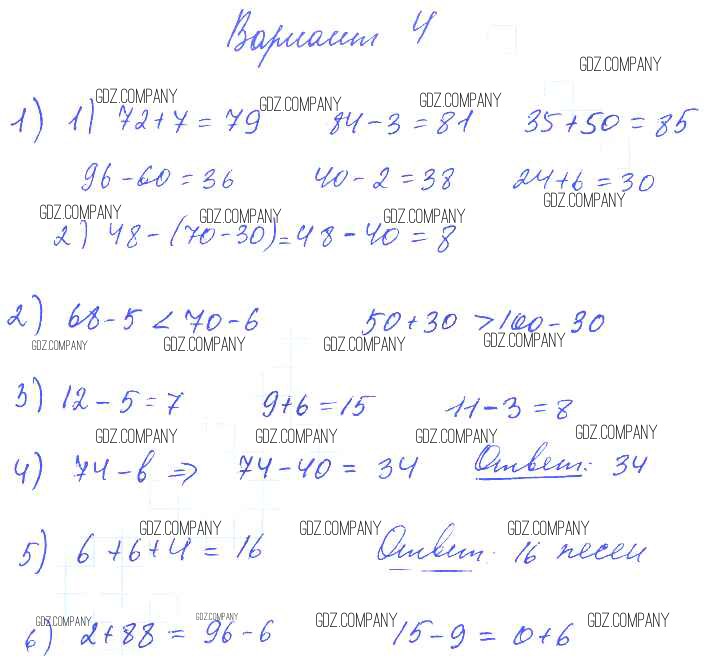 Вариант 4
GDZ.COMPANY
GDZ.COMPANY GDZ.COMPANY GDZ.COMPANY
1) 1) 72+7=79 84-3=81 35+50=85
96-60=36 40-2=38 24+6=30
GDZ.COMPANY GDZ.COMPANY GDZ.COMPANY GDZ.COMPANY
2) 48-(70-30)=48-40=8
2) 68-5<70-6 50+30>100-30
GDZ.COMPANY GDZ.COMPANY GDZ.COMPANY GDZ.COMPANY
3) 12-5=7 9+6=15 11-3=8
GDZ.COMPANY GDZ.COMPANY GDZ.COMPANY GDZ.COMPANY
4) 74-в => 74-40=34 Ответ: 34
GDZ.COMPANY GDZ.COMPANY GDZ.COMPANY
5) 6+6+4=16 Ответ: 16 песен
GDZ.COMPANY GDZ.COMPANY GDZ.COMPANY GDZ.COMPANY
6) 2+88=96-6 15-9=0+6